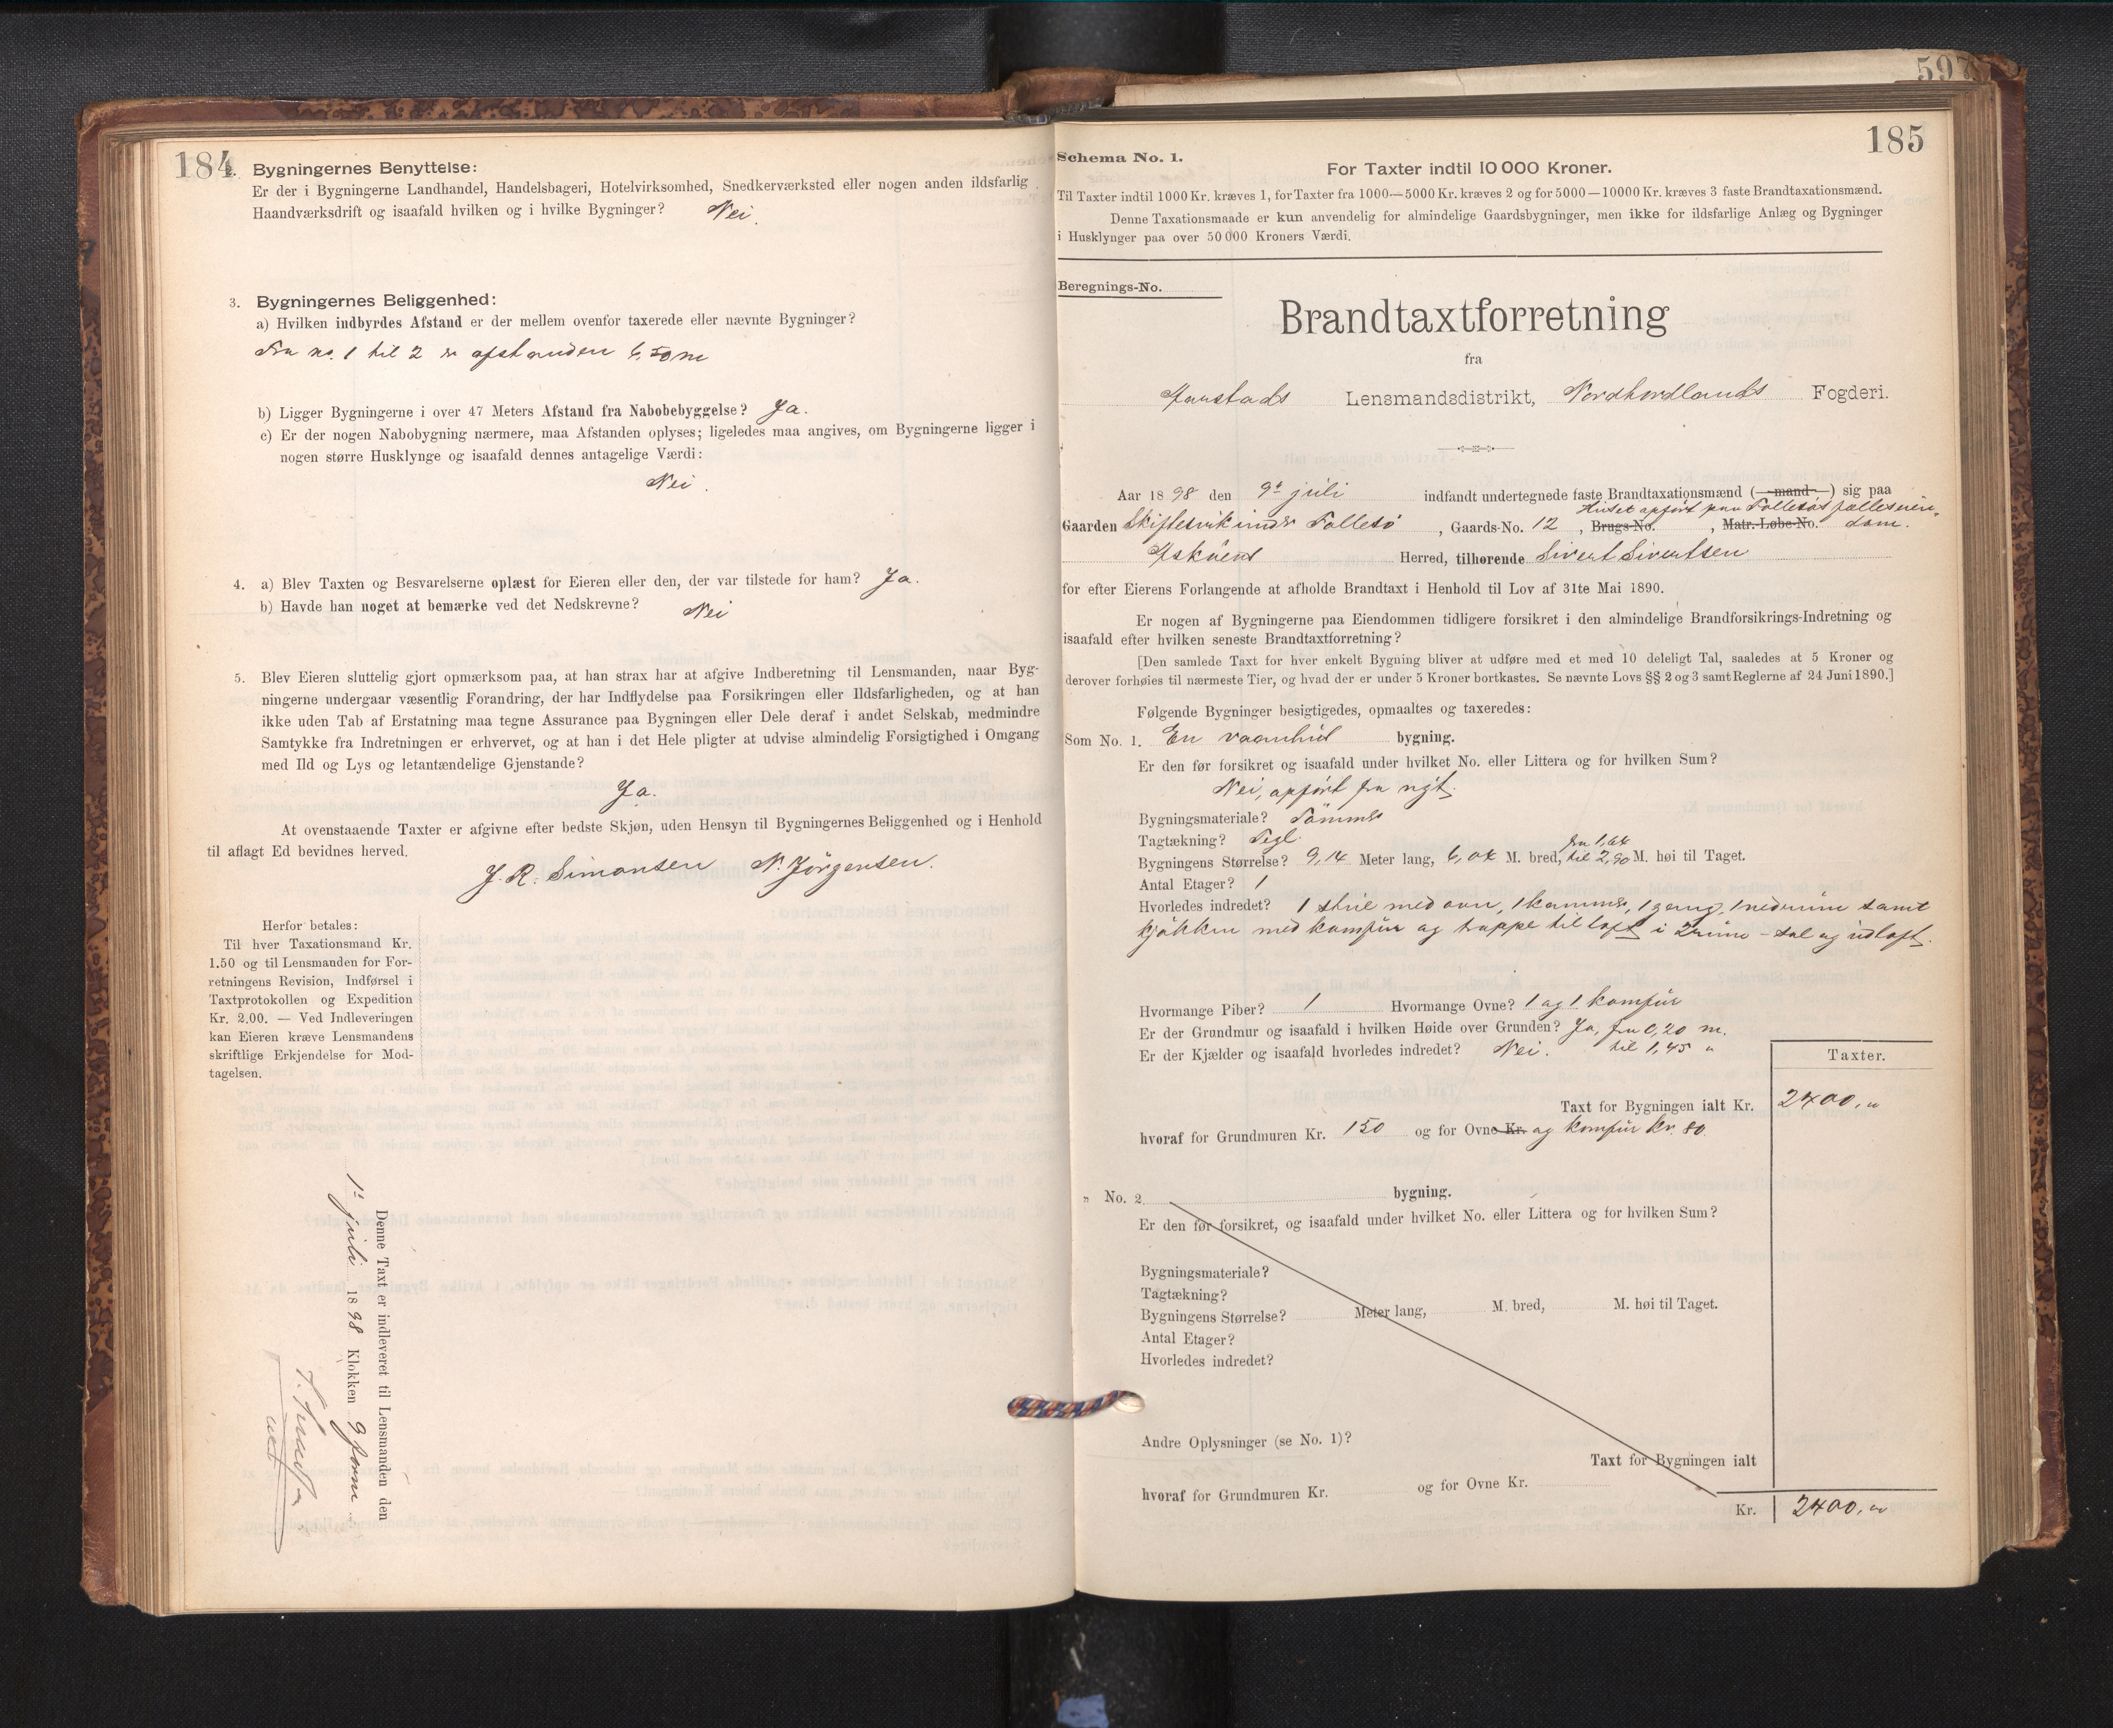 184
2. Bygningernes Benyttelse:
Er der i Bygningerne Landhandel, Handelsbageri, Hotelvirksomhed, Snedkerværksted eller nogen anden ildsfarlig
Haandværksdrift og isaafald hvilken og i hvilke Bygninger? Nei.
3. Bygningernes Beliggenhed:
a) Hvilken indbyrdes Afstand er der mellem ovenfor taxerede eller nævnte Bygninger?
Fra no. 1 til 2 er afstanden 6,50 m
b) Ligger Bygningerne i over 47 Meters Afstand fra Nabobebyggelse? Ja.
c) Er der nogen Nabobygning nærmere, maa Afstanden oplyses; ligeledes maa angives, om Bygningerne ligger i
nogen større Husklynge og isaafald dennes antagelige Værdi:
Nei.
4. a) Blev Taxten og Besvarelserne oplæst for Eieren eller den, der var tilstede for ham? Ja.
b) Havde han noget at bemærke ved det Nedskrevne? Nei
5. Blev Eieren sluttelig gjort opmærksom paa, at han strax har at afgive Indberetning til Lensmanden, naar Byg-
ningerne undergaar væsentlig Forandring, der har Indflydelse paa Forsikringen eller Ildsfarligheden, og at han
ikke uden Tab af Erstatning maa tegne Assurance paa Bygningen eller Dele deraf i andet Selskab, medmindre
Samtykke fra Indretningen er erhvervet, og at han i det Hele pligter at udvise almindelig Forsigtighed i Omgang
med Ild og Lys og letantændelige Gjenstande?
Ja.
At ovenstaaende Taxter er afgivne efter bedste Skjøn, uden Hensyn til Bygningernes Beliggenhed og i Henhold
til aflagt Ed bevidnes herved.
J. R. Simonsen N. Jörgensen.
Herfor betales:
Til hver Taxationsmand Kr.
1.50 og til Lensmanden for For-
retningens Revision, Indførsel i
Taxtprotokollen og Expedition
Kr. 2.00. — Ved Indleveringen
kan Eieren kræve Lensmandens
skriftlige Erkjendelse for Mod-
tagelsen.
Denne Taxt er indleveret til Lensmanden den
1' juli 1898 Klokken 9 form
597
185
Schema No. 1.
For Taxter indtil 10 000 Kroner.
Til Taxter indtil 1000 Kr. kræves 1, for Taxter fra 1000—5000 Kr. kræves 2 og for 5000—10000 Kr. kræves 3 faste Brandtaxationsmænd.
Denne Taxationsmaade er kun anvendelig for almindelige Gaardsbygninger, men ikke for ildsfarlige Anlæg og Bygninger
i Husklynger paa over 50 000 Kroners Værdi.
Beregnings-No.
Brandtaxtforretning
fra
Lensmandsdistrikt, Nordhordlands Fogderi.
Aar 1898 den 9' juli indfandt undertegnede faste Brandtaxationsmænd (-mand-) sig paa
Huset opført paa Follesøs fælleseien-
Gaarden Skiftesvik under Follesø, Gaards-No. 12, Brugs-No. , Matr.-Løbe-No. dom.
Askøens Herred, tilhørende Sivert Sivertsen
for efter Eierens Forlangende at afholde Brandtaxt i Henhold til Lov af 31te Mai 1890.
Er nogen af Bygningerne paa Eiendommen tidligere forsikret i den almindelige Brandforsikrings-Indretning og
isaafald efter hvilken seneste Brandtaxtforretning?
[Den samlede Taxt for hver enkelt Bygning bliver at udføre med et med 10 deleligt Tal, saaledes at 5 Kroner og
derover forhøies til nærmeste Tier, og hvad der er under 5 Kroner bortkastes. Se nævnte Lovs §§ 2 og 3 samt Reglerne af 24 Juni 1890.]
Følgende Bygninger besigtigedes, opmaaltes og taxeredes:
Som No. 1. En vaanhus bygning.
Er den før forsikret og isaafald under hvilket No. eller Littera og for hvilken Sum?
Nei, opført fra nyt.
Bygningsmateriale? Tömmer
Tagtækning? Tegl.
fra 1,64
Bygningens Størrelse? 9,14 Meter lang, 6,04 M. bred, til 2,90 M. høi til Taget.
Antal Etager? 1
Hvorledes indredet? 1 stue med ovn, 1 kammer, 1 gang, samt
kjökken med komfür og trappe til loft i 2 rüm - sal og udloft.
Hvormange Piber? 1 Hvormange Ovne? 1 og 1 komfür
Er der Grundmur og isaafald i hvilken Høide over Grunden? Ja, fra 0,20 m.
Er der Kjælder og isaafald hvorledes indredet? Nei. til 1,45 "
Taxter.
Taxt for Bygningen ialt Kr. 2400, "
hvoraf for Grundmuren Kr. 150 og for Ovne Kr. og komfür Kr. 80
" No. 2. bygning.
Er den før forsikret, og isaafald under hvilket No. eller Littera og for hvilken Sum?
Bygningsmateriale?
Tagtækning?
Bygningens Størrelse? Meter lang, M. bred, M. høi til Taget.
Antal Etager?
Hvorledes indredet?
Andre Oplysninger (se No. 1)?
Taxt for Bygningen ialt
hvoraf for Grundmuren Kr. og for Ovne Kr.
Kr. 2400, "